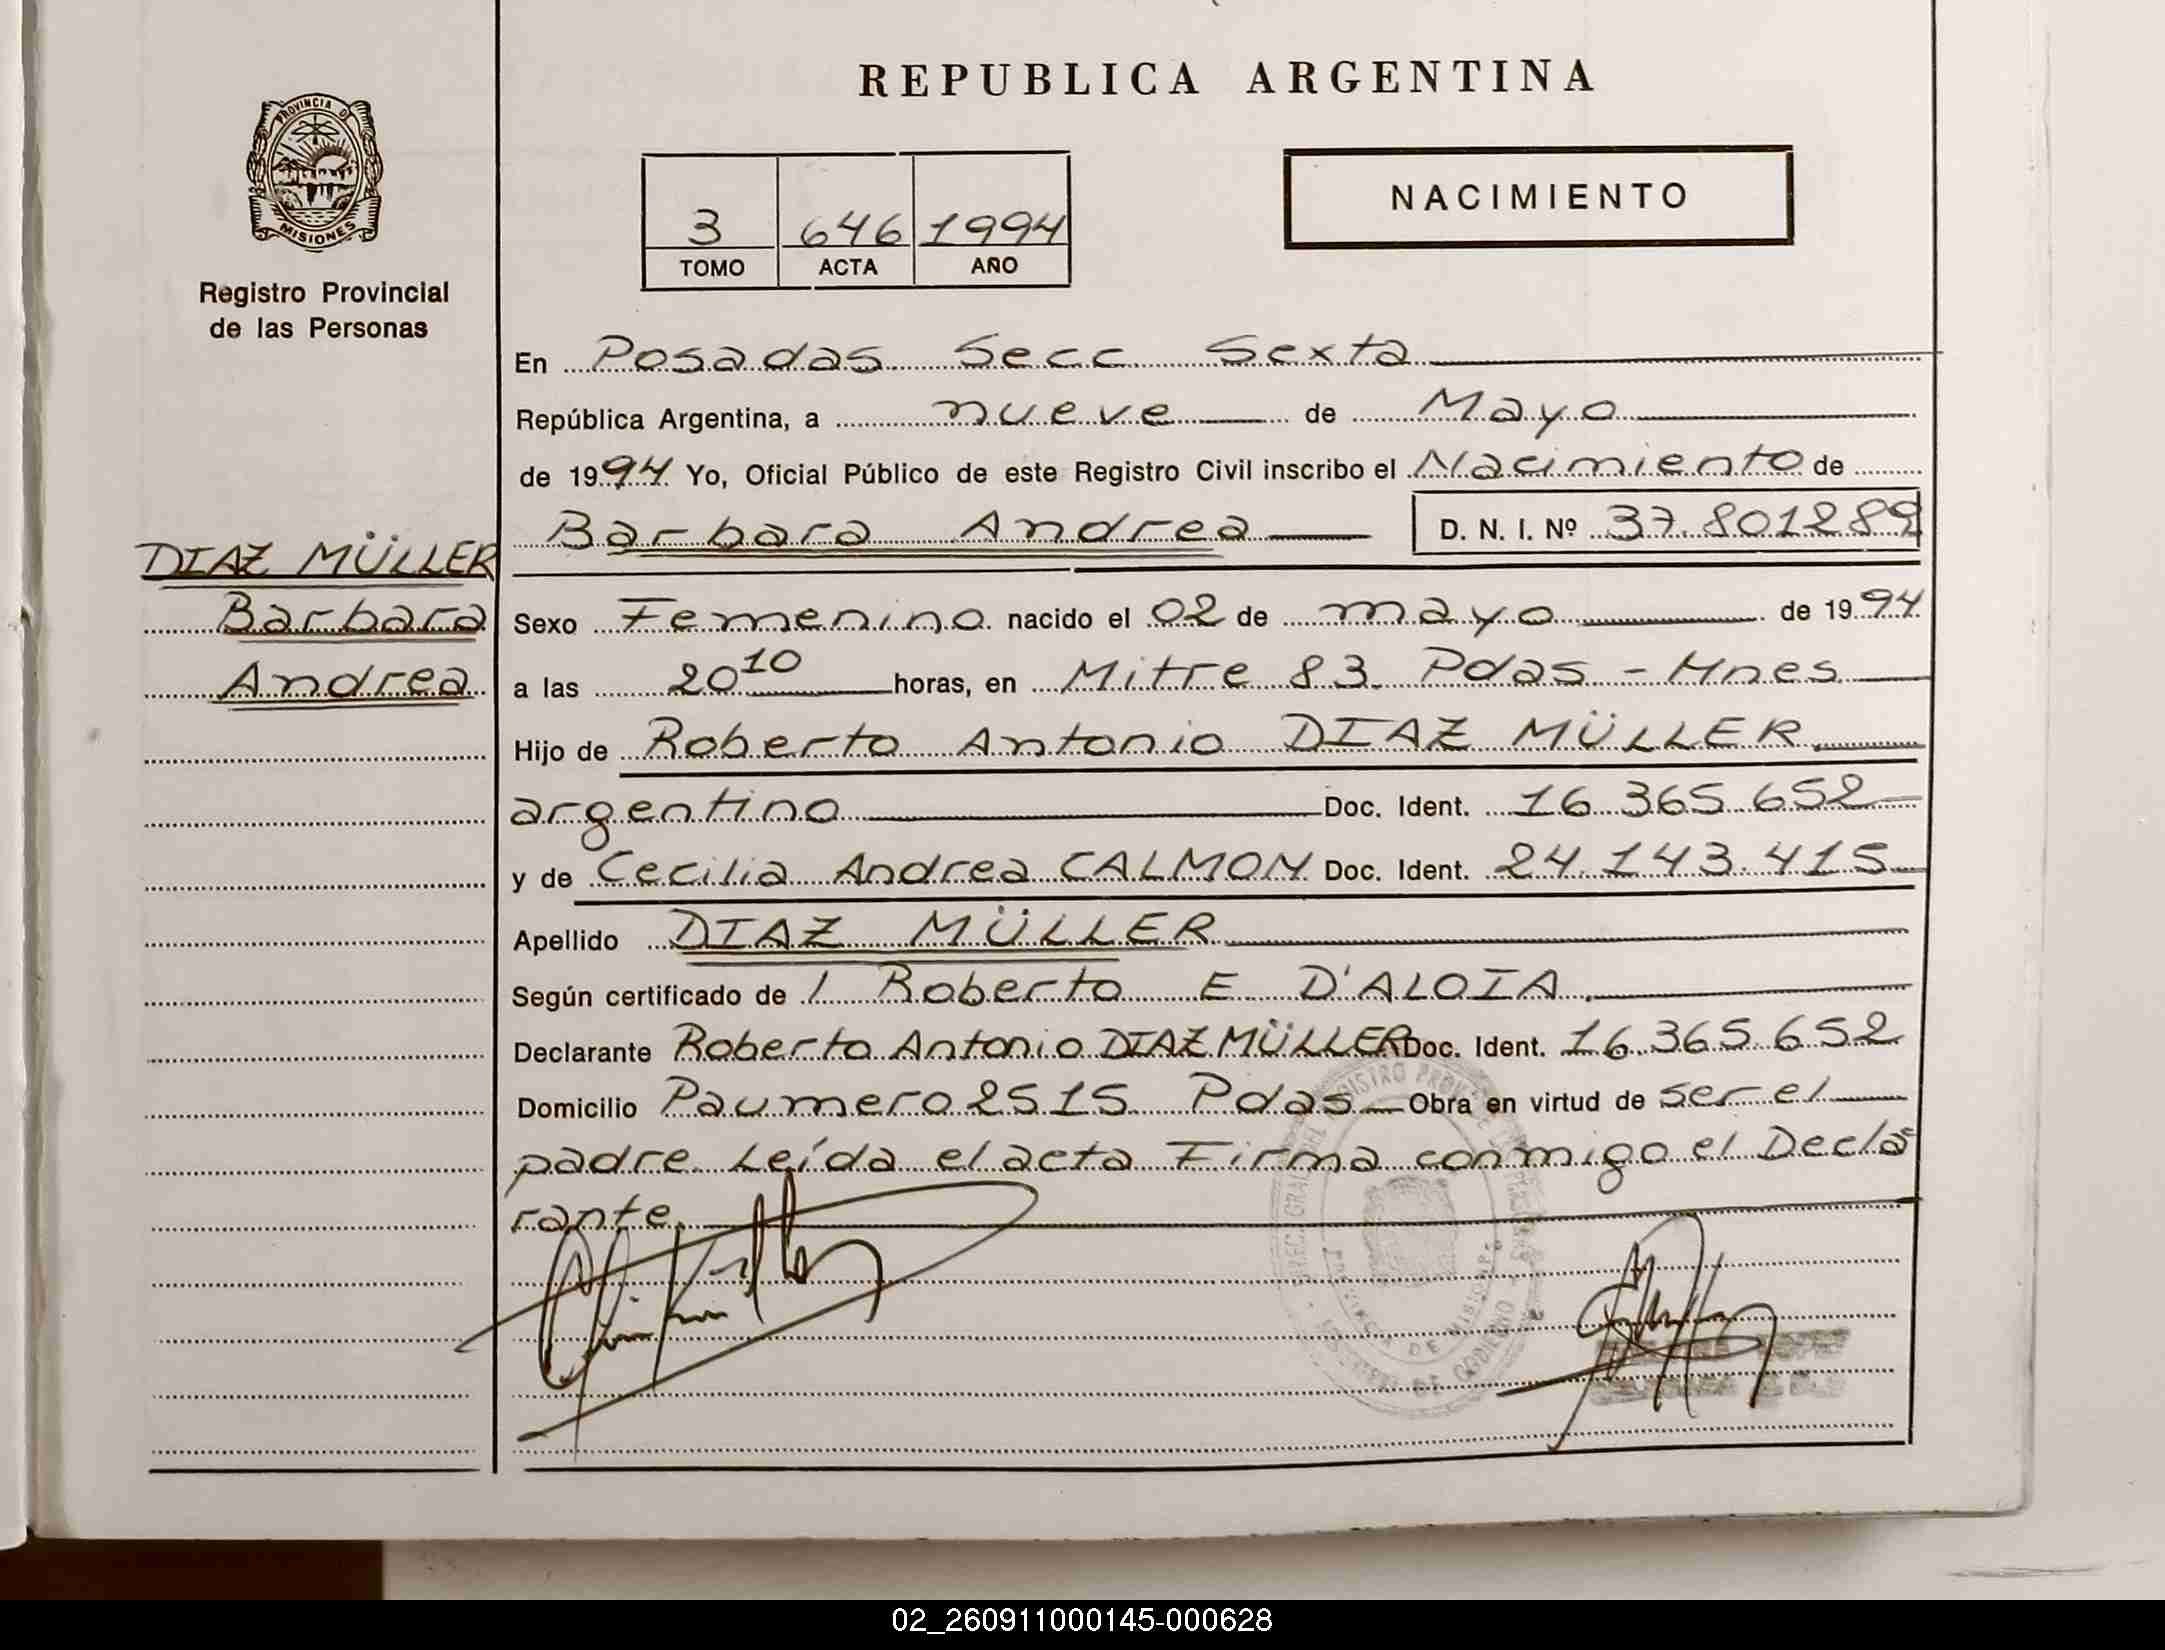 REPUBLICA ARGENTINA
PROVINCIA DE
MISIONES
Registro Provincial
de las Personas
3 646 1994
TOMO ACTA AÑO
NACIMIENTO
En Posadas Secc Sexta
República Argentina, a nueve de Mayo
de 1994 Yo, Oficial Público de este Registro Civil inscribo el Nacimiento de
Barbara Andrea D. N. I. Nº 37.801289
DIAZ MÜLLER
Barbara
Andrea
Sexo Femenino nacido el 02 de mayo de 1994
a las 20 10 horas, en Mitre 83 Pdas - Mnes
Hijo de Roberto Antonio DIAZ MÜLLER
argentino Doc. Ident. 16 365 652
y de Cecilia Andrea CALMON Doc. Ident. 24.143.415
Apellido DIAZ MÜLLER
Según certificado de / Roberto E D'ALOIA
Declarante Roberto Antonio DIAZ MÜLLER Doc. Ident. 16 365 652
Domicilio Paumero 2515 Pdas Obra en virtud de ser el
padre Leída el acta Firma conmigo el Decla
rante.
PROVINCIA DE MISIONES
02_260911000145-000628